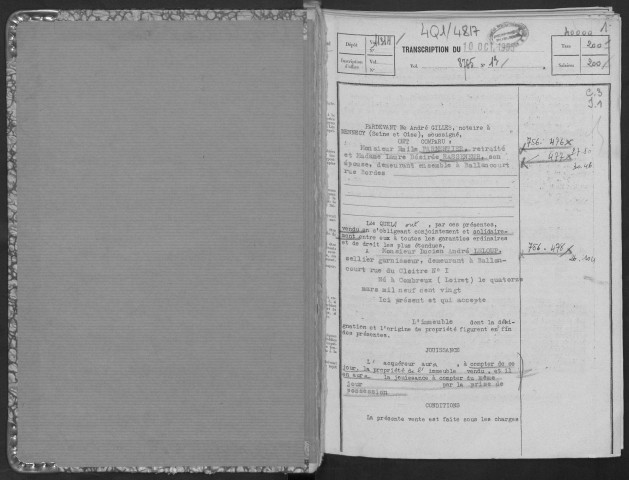 4Q1/4817
1
Dépôt
TRANSCRIPTION DU
10 OCT
Vol. 8765 n° 13
Taxe 200
Salaires 200
PARDEVANT Me André GILLES, notaire à
(Seine et Oise), soussigné,
ONT COMPARU :
Monsieur Emile, retraité
et Madame Laure Désirée, son
épouse, demeurant ensemble à Ballancourt
rue
756-476
477
LESQUELS ont, par ces présentes,
vendu en s'obligeant conjointement et solidaire-
ment entre eux à toutes les garanties ordinaires
et de droit les plus étendues.
A Monsieur Lucien André
sellier garnisseur, demeurant à Ballan-
court rue du Cloitre N° 1
756-478
Né à Combreux (Loiret) le quatorze
mars mil neuf cent vingt
Ici présent et qui accepte
L'immeuble dont la dési-
gnation et l'origine de propriété figurent en fin
des présentes.
JOUISSANCE
L' acquéreur aura, à compter de ce
jour, la propriété de l' immeuble vendu, et il
en aura la jouissance à compter du même
jour par la prise de
possession
CONDITIONS
La présente vente est faite sous les charges